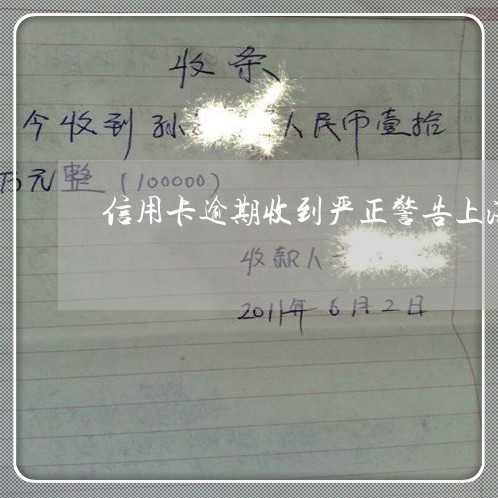 收条
今收到孙 人民币壹拾
万元整(100000)
信用卡逾期收到严正警告上
收款人
2011年6月2日